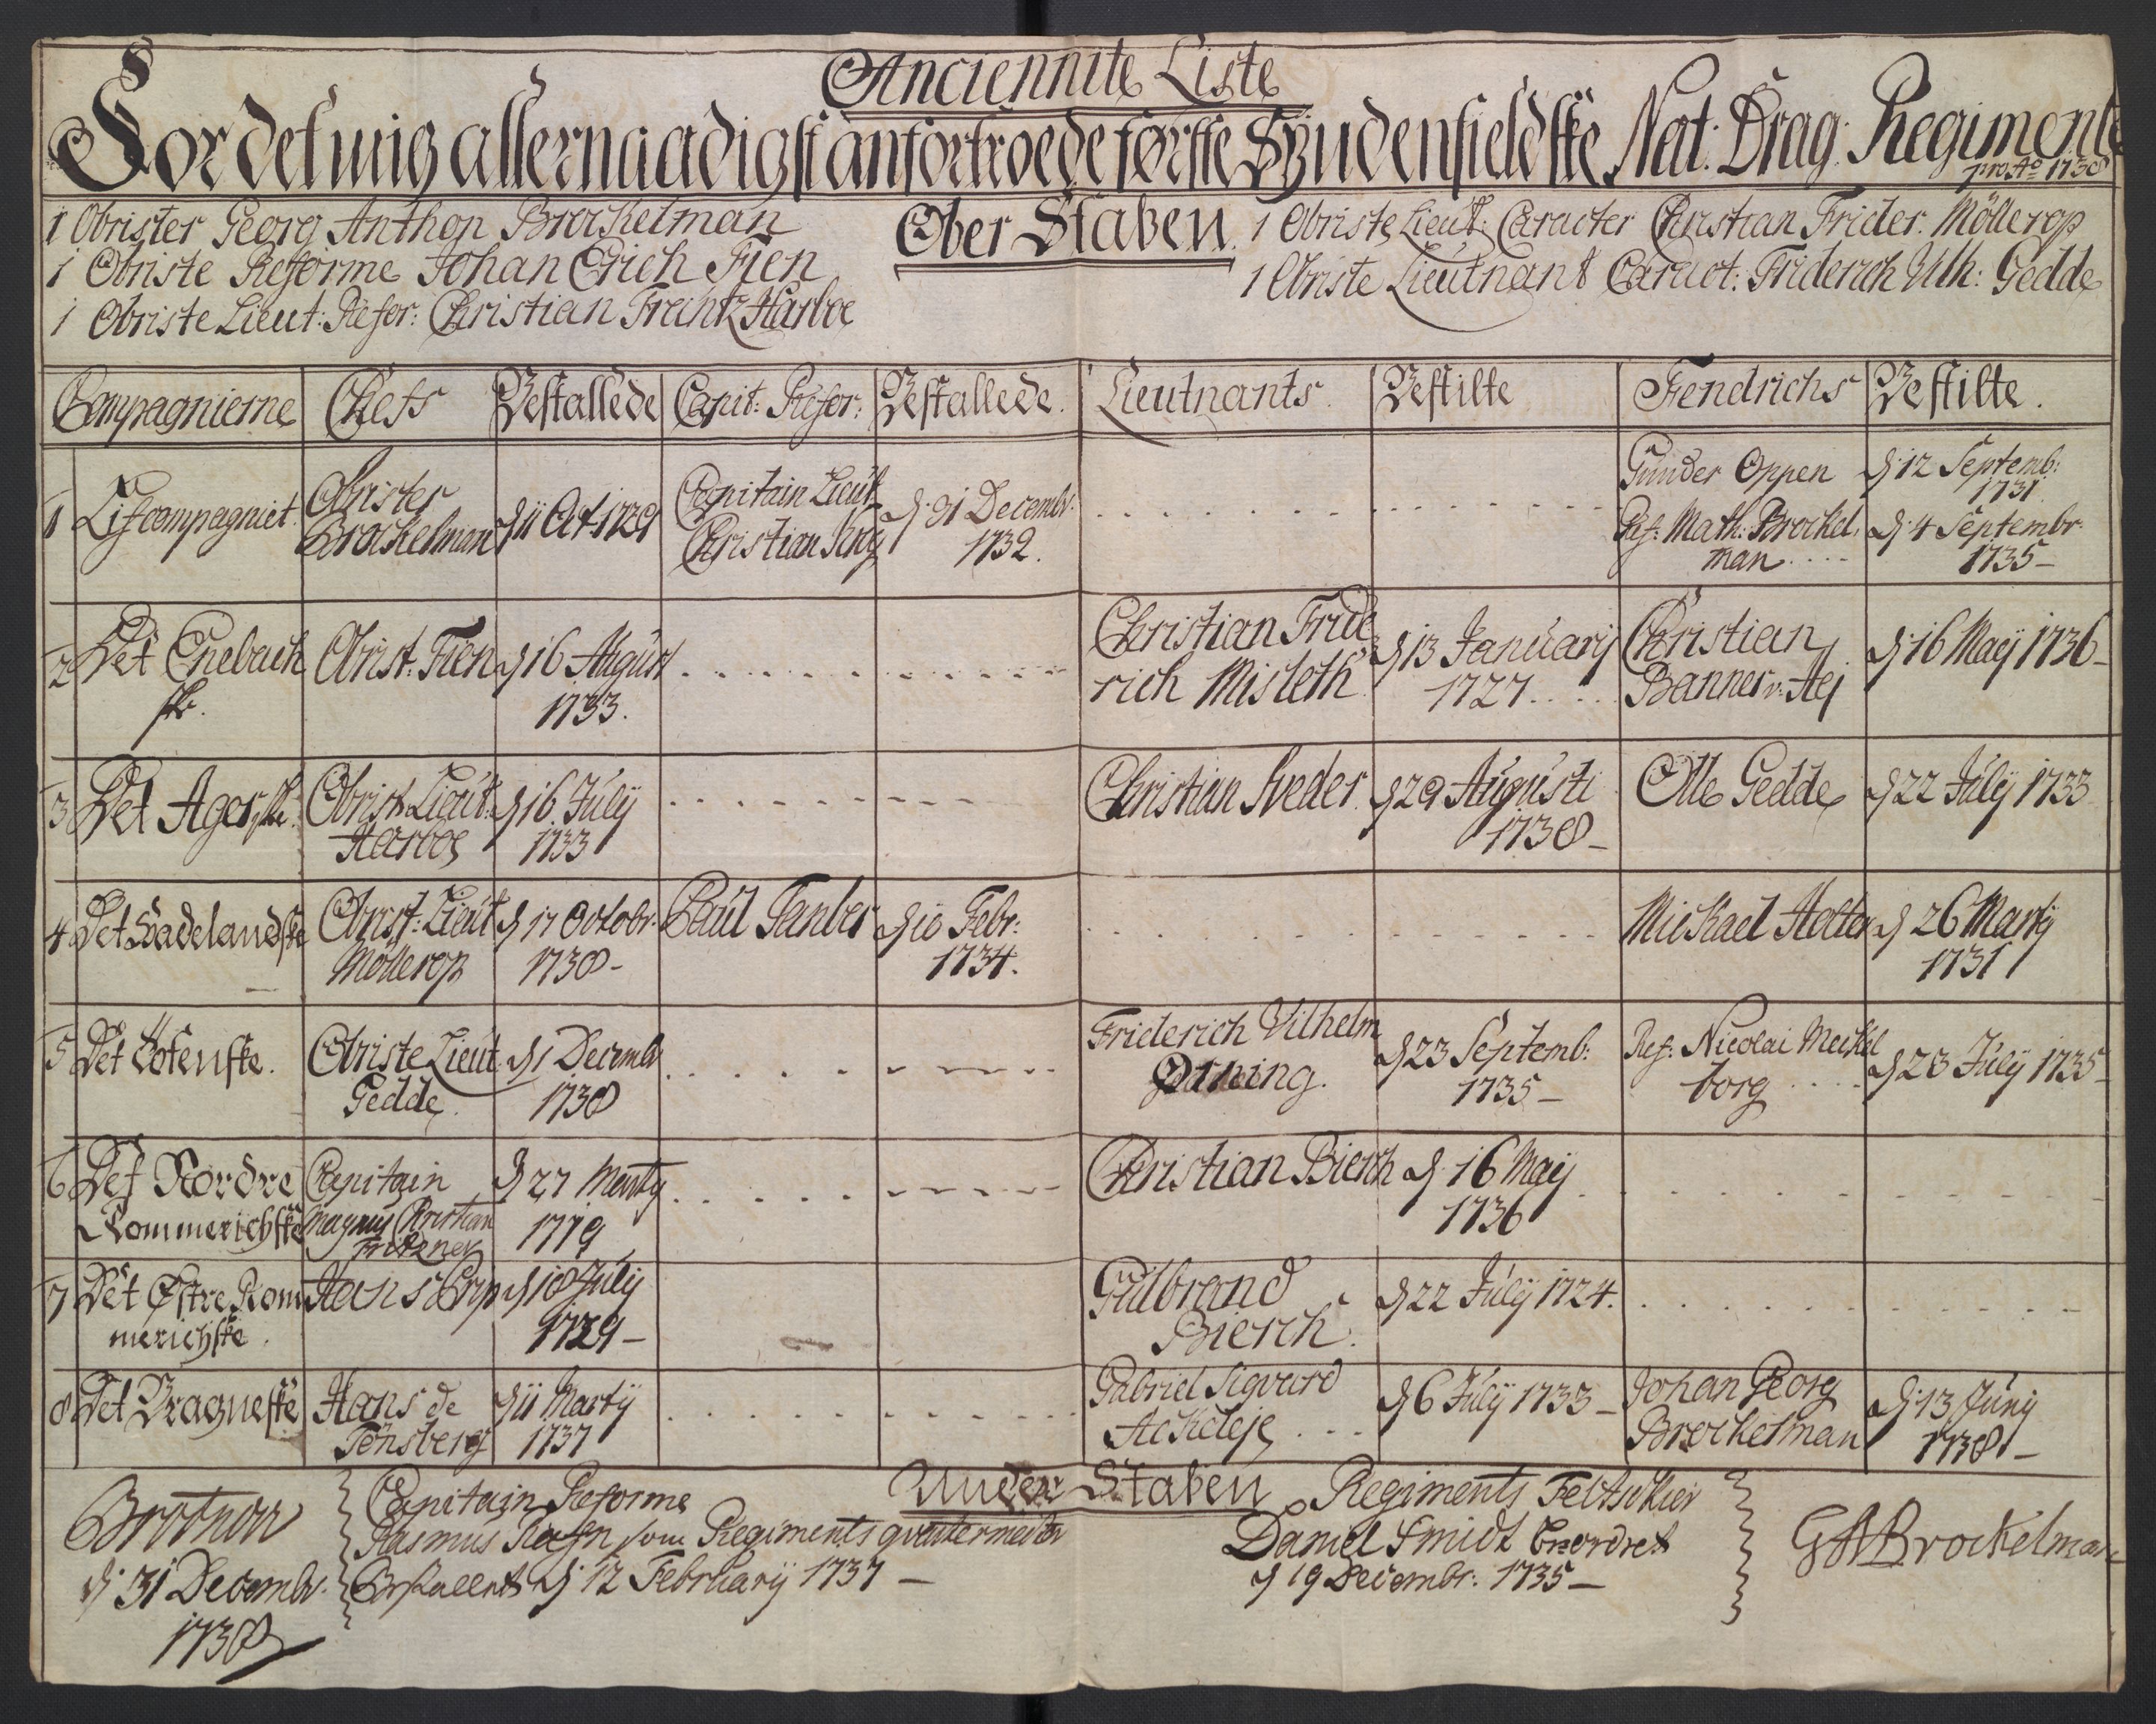 Anciennite Liste
For det mig allernaadigst anfortroede første Syndenfieldske Nat: Drag: Regimente
pro Ao 1738
1 Obrister Georg Anthon Brockelman
1 Obriste Reforme Johan Erich Fien
1 Obriste Lieut: Refor: Christian Frantz Harboe
Ober Staben.
1 Obriste Lieut: Caracter Christian Frider: Möllerop
1 Obriste Lieutnant Caract: Friderich Vilh: Gedde
Compagnierne Chefs Bestallede Capit: Refor: Bestallede. Lieutnants. Bestilte Fendrichs Bestilte.
1 Lifcompagniet. Obrister Brockelman d 11 Oct 1729 Capitain Lieut Christian Krog d. 31 Decembr. 1732. Gunder Oppen d. 12 Septemb: 1731
Ref: Math: Brockel man d. 4 Septembr 1735
2 Det Enebach ske. Obrist: Fien d 16 August 1733. Christian Fride rich Misleth d 13 Januarij 1727 Christian Banner v. Aej d. 16 Maij 1736
3 Det Agerske. Obrist Lieut: Harboe d 16. Julij 1733 Christian Sveder. d 29 Augusti 1738 Olle Gedde d 22 Julij 1733
4 Det Hadelandske Obrist: Lieut Möllerop d 17 Octobr. 1738 Paul Tanber d 10 Febr: 1734. Michael Holter d 26 Martij 1731
5 Det Totenske. Obriste Lieut Gedde. d 1 Decembr 1738 Friderich Vilhelm d 23 Septemb: 1735 Ref: Nicolai Meckel borg d 23 Julij 1735
6 Det Nordre Rommerichske Capitain Magnus Christian Fritzner d 27 Martij 1719 Christian Bierch d. 16 Maij 1736
7 Det Østre Rom merichske. Hans Coip d 18 Julij 1729 Gulbrand Bierch. d 22 Julij 1724.
8 Det Bragneske Hans de Tönsberg d 11 Martij 1737 Gabriel Sigvard Ackeleje d 6 Julij 1733 Johan Georg Brockelman d. 13 Junij 1738
Under Staben
Brotnou
d. 31 Decembr. 1738
Capitain Reforme
Rasmus Rafn som Regiments qvartermester
Bestallent d. 12 Februarij 1737
Regiments Feltschier
Daniel Smidt Beordret
d 19 Decembr: 1735
GA Brockelman